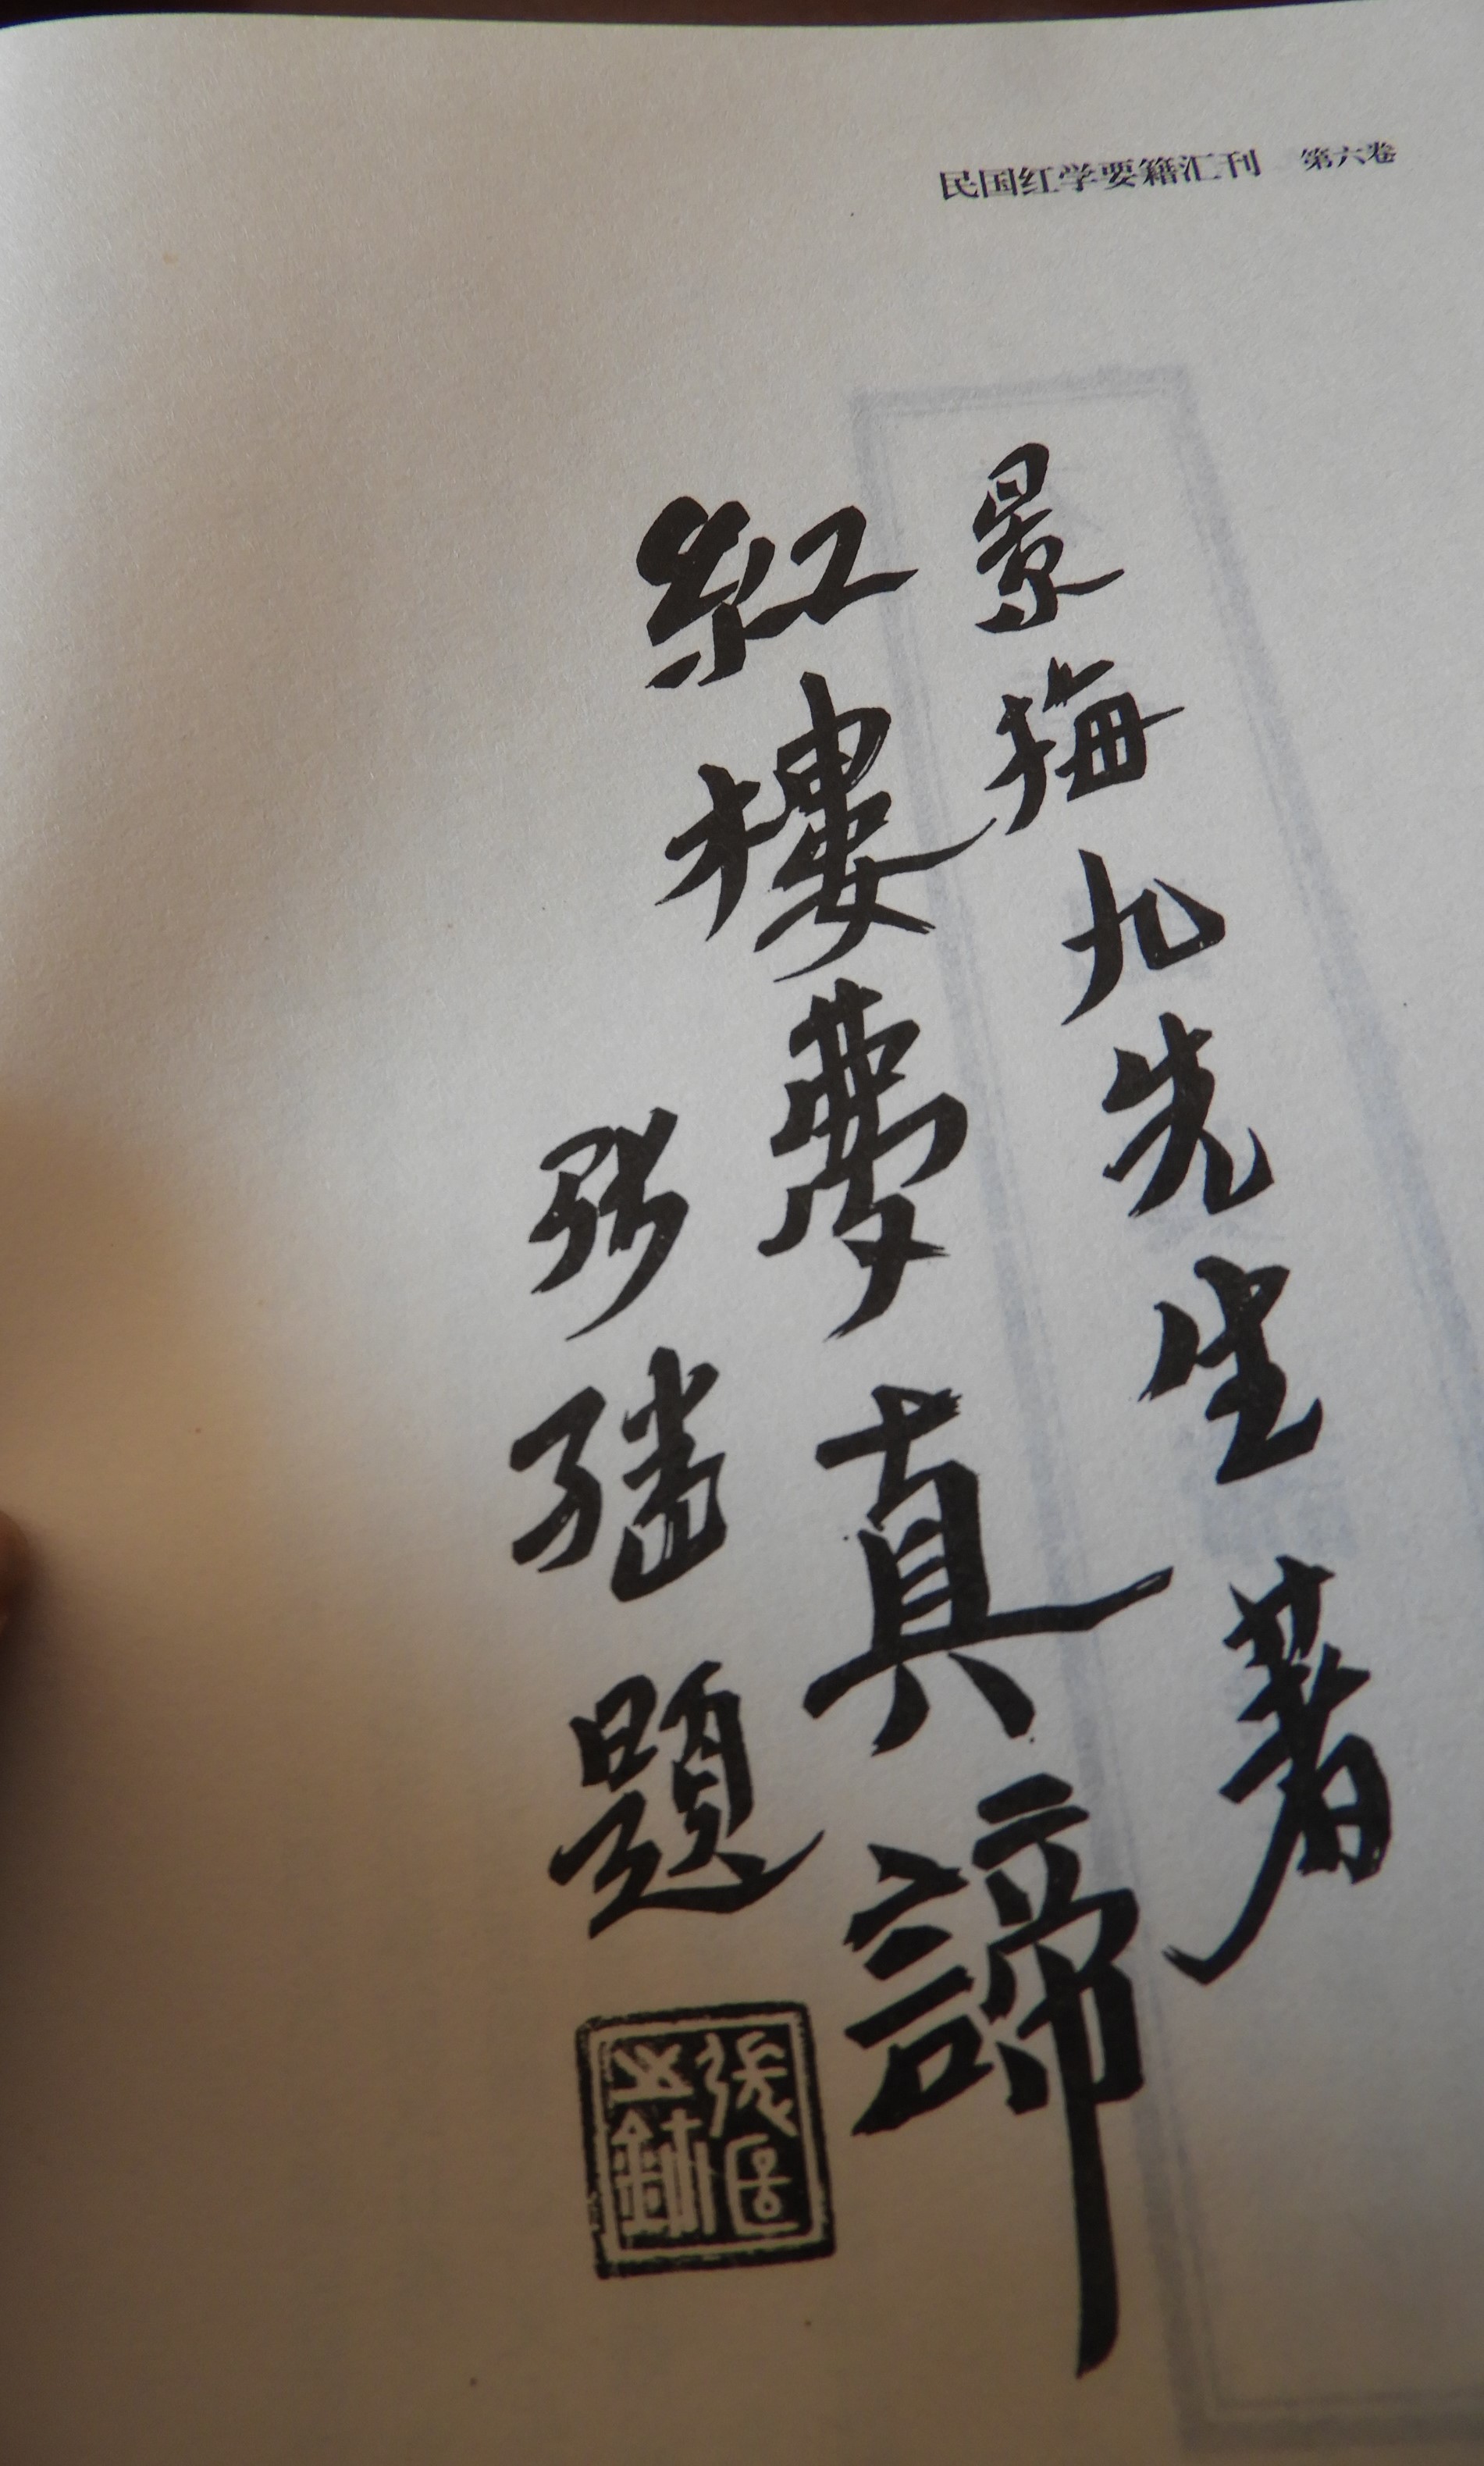 民国红学要籍汇刊 第六卷
景梅九先生著
紅樓夢真諦
張 題